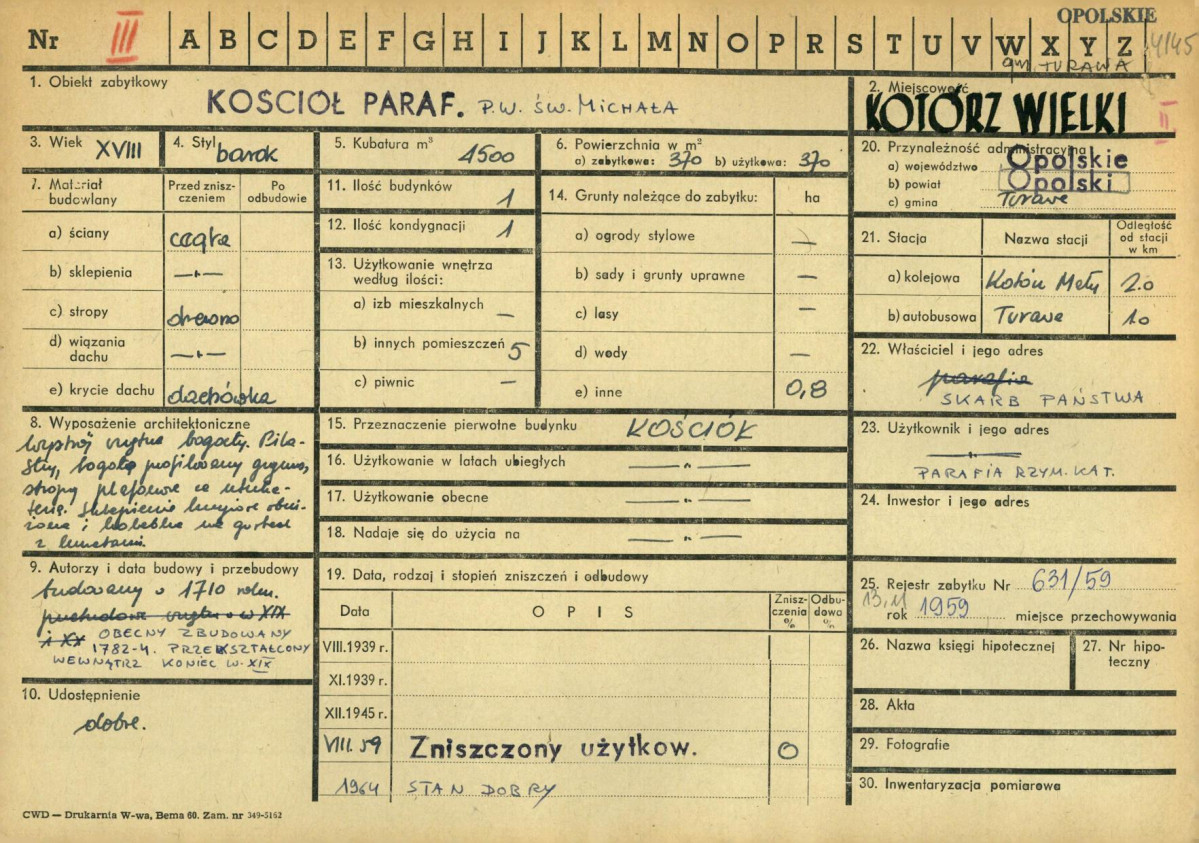 OPOLSKIE
Nr III A B C D E F G H I J K L M N O P R S T U V W X Y Z 4145
gm. TURAWA
1. Obiekt zabytkowy
KOŚCIOŁ PARAF. P.W. ŚW. MICHAŁA
2. Miejscowość
KOTÓRZ WIELKI
II
3. Wiek XVIII
4. Styl barok
5. Kubatura m³ 1500
6. Powierzchnia w m²
a) zabytkowa: 370 b) użytkowa: 370
20. Przynależność administracyjna
a) województwo Opolskie
b) powiat Opolski
c) gmina Turawa
7. Materiał budowlany
Przed zniszczeniem
Po odbudowie
a) ściany cegła
b) sklepienia —„—
c) stropy drewno
d) wiązania dachu —„—
e) krycie dachu dachówka
11. Ilość budynków 1
12. Ilość kondygnacji 1
13. Użytkowanie wnętrza
według ilości:
a) izb mieszkalnych —
b) innych pomieszczeń 5
c) piwnic —
14. Grunty należące do zabytku: ha
a) ogrody stylowe —
b) sady i grunty uprawne —
c) lasy —
d) wody —
e) inne 0,8
21. Stacja
Nazwa stacji
Odległość
od stacji
w km
a) kolejowa Kotórz Mały 2.0
b) autobusowa Turawa 1.0
22. Właściciel i jego adres
parafia
SKARB PAŃSTWA
8. Wyposażenie architektoniczne
Wystrój wnętrza bogaty. Pila-
stry, bogato profilowany gzyms,
stropy
i kolebka na gurtach
z lunetami.
15. Przeznaczenie pierwotne budynku KOŚCIÓŁ
16. Użytkowanie w latach ubiegłych —„—
17. Użytkowanie obecne —„—
18. Nadaje się do użycia na —„—
23. Użytkownik i jego adres
—„—
PARAFIA RZYM. KAT.
24. Inwestor i jego adres
9. Autorzy i data budowy i przebudowy
budowany w 1710 roku.
przebudowa wnętrza w XIX
i XX OBECNY ZBUDOWANY
1782-4. PRZEKSZTAŁCONY
WEWNĄTRZ KONIEC W. XIX
10. Udostępnienie
dobre.
19. Data, rodzaj i stopień zniszczeń i odbudowy
Data
O P I S
Znisz-
czenia
%
Odbu-
dowa
%
VIII.1939 r.
XI.1939 r.
XII.1945 r.
VIII. 59 Zniszczony użytkow. 0
1964 STAN DOBRY
25. Rejestr zabytku Nr 631/59
13.11 rok 1959 miejsce przechowywania
26. Nazwa księgi hipotecznej
27. Nr hipo-
teczny
28. Akta
29. Fotografie
30. Inwentaryzacja pomiarowa
CWD — Drukarnia W-wa, Bema 60. Zam. nr 349-5162